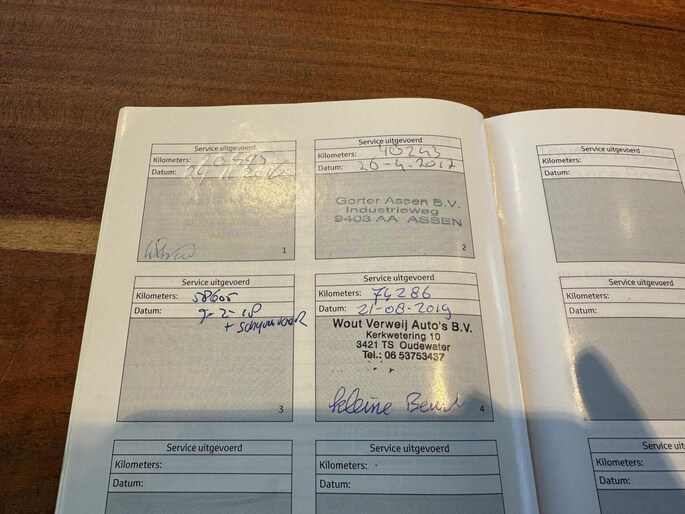 Service uitgevoerd
Kilometers: 20595
Datum: 29 11 2016
1
Service uitgevoerd
Kilometers: 40243
Datum: 26-4-2017
Gorter Assen B.V.
Industrieweg
9403 AA ASSEN
2
Service uitgevoerd
Kilometers:
Service uitgevoerd
Kilometers: 58605
Datum: 9-2-18
+ schijven voor
3
Service uitgevoerd
Kilometers: 74286
Datum: 21-08-2019
Wout Verweij Auto's B.V.
Kerkwetering 10
3421 TS Oudewater
Tel.: 06 53753437
kleine Beurt
4
Service uitgevoerd
Kilometers:
Datum:
Service uitgevoerd
Kilometers:
Datum:
Service uitgevoerd
Kilometers:
Datum:
Datum:
Service uit
Kilometers:
Datum: